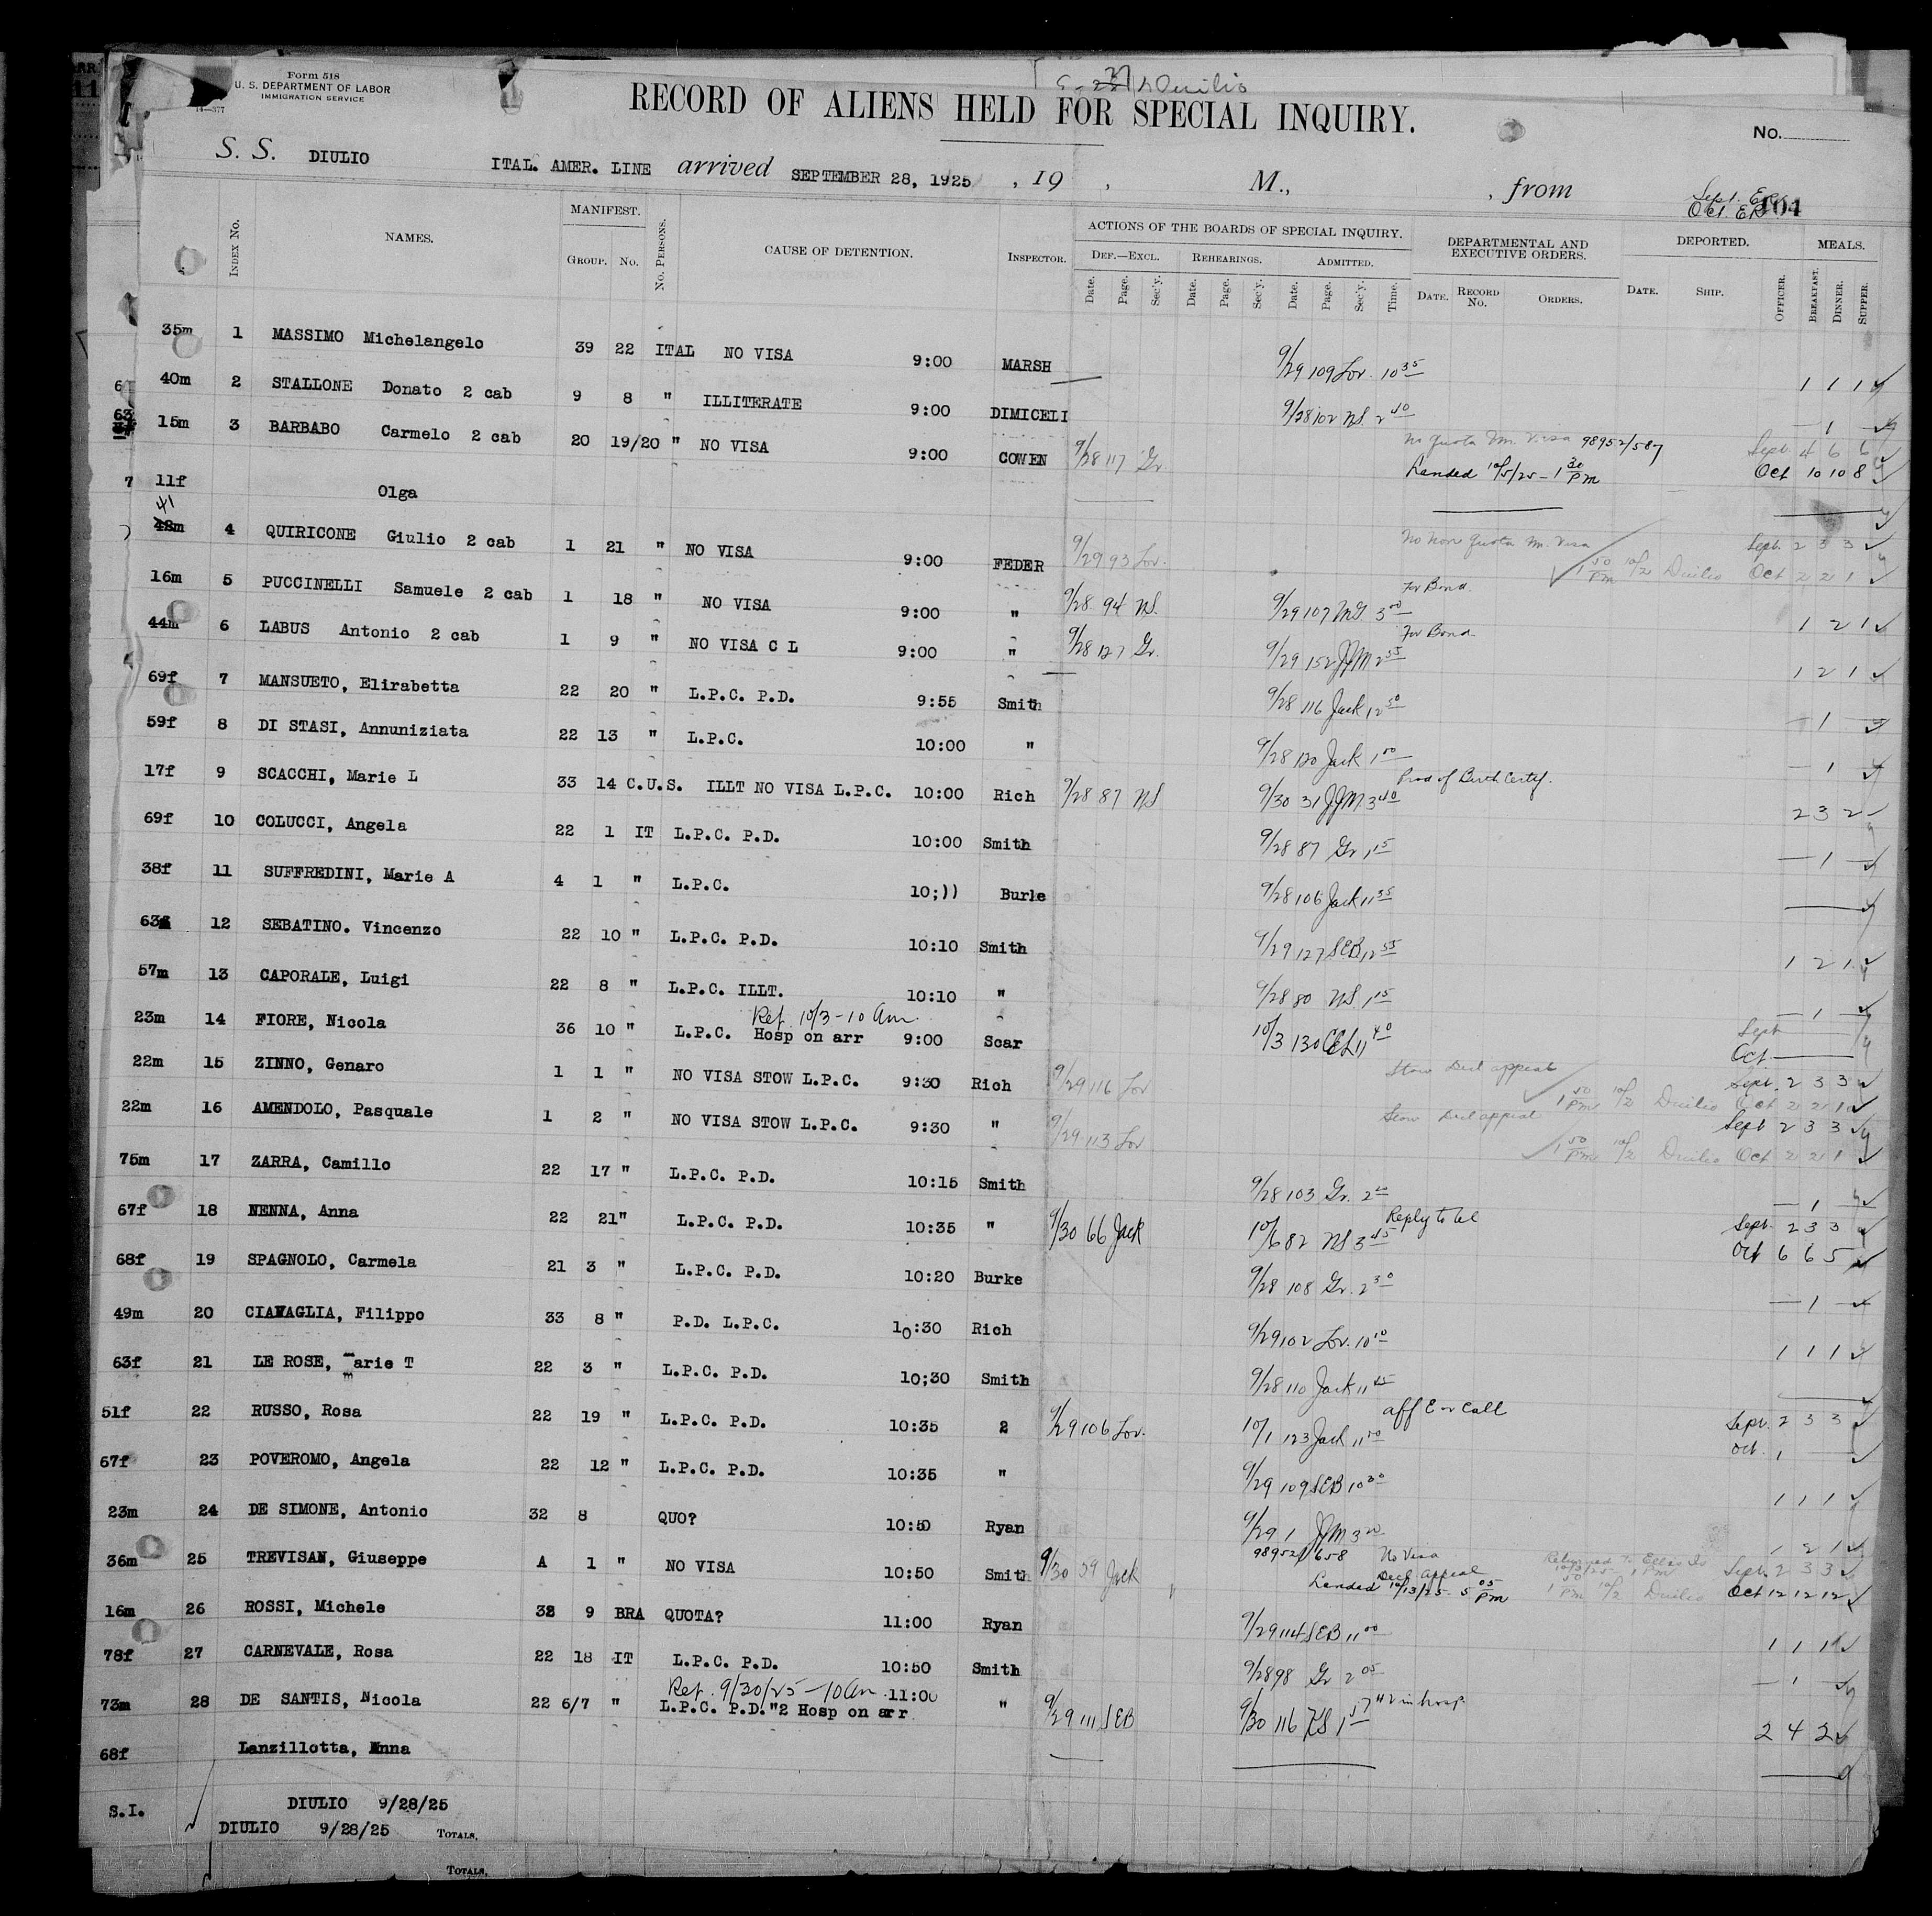 Form 518
U. S. DEPARTMENT OF LABOR
IMMIGRATION SERVICE
14—377
Duilio
RECORD OF ALIENS HELD FOR SPECIAL INQUIRY.
No.
S. S. DIULIO ITAL. AMER. LINE arrived SEPTEMBER 28, 1925 , 19 , M., , from
104
INDEX No. NAMES. MANIFEST. GROUP. No. No. PERSONS. CAUSE OF DETENTION. INSPECTOR. ACTIONS OF THE BOARDS OF SPECIAL INQUIRY. DEF.—EXCL. Date. Page. Sec'y. REHEARINGS. Date. Page. Sec'y. ADMITTED. Date. Page. Sec'y. Time. DEPARTMENTAL AND EXECUTIVE ORDERS. DATE. RECORD No. ORDERS. DEPORTED. DATE. SHIP. OFFICER. MEALS. BREAKFAST. DINNER. SUPPER.
35m 1 MASSIMO Michelangelo 39 22 ITAL NO VISA 9:00 MARSH 9/29 109 Lov. 10 35 1 1 1
40m 2 STALLONE Donato 2 cab 9 8 " ILLITERATE 9:00 DIMICELI 9/28 102 NS. 2 40 — 1 —
15m 3 BARBABO Carmelo 2 cab 20 19/20 " NO VISA 9:00 COWEN 9/28 117 Gr No quota Im. Visa 98952/587 Sept 4 6 6
Landed 10/5/25 - 1 30 PM Oct 10 10 8
11f Olga
41
42m 4 QUIRICONE Giulio 2 cab 1 21 " NO VISA 9:00 FEDER 9/29 93 Lov. No non quota im. visa Sept. 2 3 3
1 50 PM 10/2 Duilio Oct 2 2 1
16m 5 PUCCINELLI Samuele 2 cab 1 18 " NO VISA 9:00 " 9/28 94 NS. 9/29 107 MG 3 00 For Bond. 1 2 1
44m 6 LABUS Antonio 2 cab 1 9 " NO VISA C L 9:00 " 9/28 127 Gr. 9/29 152 JJM 2 55 For Bond. 1 2 1
69f 7 MANSUETO, Elirabetta 22 20 " L.P.C. P.D. 9:55 Smith 9/28 116 Jack 12 50 — 1 —
59f 8 DI STASI, Annuniziata 22 13 " L.P.C. 10:00 " 9/28 120 Jack 1 00 — 1 —
17f 9 SCACCHI, Marie L 33 14 C.U.S. ILLT NO VISA L.P.C. 10:00 Rich 9/28 87 NS 9/30 31 JJM 3 40 Prod of Birth Certif. 2 3 2
69f 10 COLUCCI, Angela 22 1 IT L.P.C. P.D. 10:00 Smith 9/28 87 Gr 1 15 — 1 —
38f 11 SUFFREDINI, Marie A 4 1 " L.P.C. 10;)) Burke 9/28 106 Jack 11 35
63 12 SEBATINO. Vincenzo 22 10 " L.P.C. P.D. 10:10 Smith 9/29 127 SEB 12 55 1 2 1
57m 13 CAPORALE, Luigi 22 8 " L.P.C. ILLT. 10:10 " 9/28 80 NS 1 15 — 1 —
Ret 10/3 - 10 am
23m 14 FIORE, Nicola 36 10 " L.P.C. Hosp on arr 9:00 Scar 10/3 130 11 40 Sept
Oct
22m 15 ZINNO, Genaro 1 1 " NO VISA STOW L.P.C. 9:30 Rich 9/29 116 Lov Stow Decl appeal Sept. 2 3 3
1 50 PM 10/2 Duilio Oct 2 2 1
22m 16 AMENDOLO, Pasquale 1 2 " NO VISA STOW L.P.C. 9:30 " 9/29 113 Lov Stow Decl appeal Sept 2 3 3
1 50 PM 10/2 Duilio Oct 2 2 1
75m 17 ZARRA, Camillo 22 17 " L.P.C. P.D. 10:15 Smith 9/28 103 Gr. 2 — 1 —
67f 18 NENNA, Anna 22 21 " L.P.C. P.D. 10:35 " 9/30 66 Jack 10/6 82 NS 3 45 Reply to tel Sept. 2 3 3
Oct 6 6 5
68f 19 SPAGNOLO, Carmela 21 3 " L.P.C. P.D. 10:20 Burke 9/28 108 Gr. 2 30 — 1 —
49m 20 CIAVAGLIA, Filippo 33 8 " P.D. L.P.C. 10:30 Rich 9/29 102 Lov. 10 10 1 1 1
63f 21 LE ROSE, marie T 22 3 " L.P.C. P.D. 10;30 Smith 9/28 110 Jack 11 45
51f 22 RUSSO, Rosa 22 19 " L.P.C. P.D. 10:35 2 9/29 106 Lov. 10/1 123 Jack 11 00 aff & call Sept. 2 3 3
Oct. 1
67f 23 POVEROMO, Angela 22 12 " L.P.C. P.D. 10:35 " 9/29 109 SEB 10 30 1 1 1
23m 24 DE SIMONE, Antonio 32 8 QUO? 10:50 Ryan 9/29 1 JJM 3 20 1 2 1
36m 25 TREVISAN, Giuseppe A 1 " NO VISA 10:50 Smith 9/30 59 Jack 98952/658 No Visa Decl. Appeal Returned to Ellis Is 10/3/25 1 PM Sept. 2 3 3
Landed 10/13/25 - 5 05 PM 1 50 PM 10/2 Duilio Oct 12 12 12
16m 26 ROSSI, Michele 32 9 BRA QUOTA? 11:00 Ryan 9/29 114 SEB 11 00 1 1 1
78f 27 CARNEVALE, Rosa 22 18 IT L.P.C. P.D. 10:50 Smith 9/28 98 Gr 2 05 — 1 —
Ret. 9/30/25 - 10 am 11:00
73m 28 DE SANTIS, Nicola 22 6/7 " L.P.C. P.D."2 Hosp on arr " 9/29 111 SEB 9/30 116 1 57 #2 in hosp. 2 4 2
68f Lanzillotta, Anna
S.I. DIULIO 9/28/25
DIULIO 9/28/25 TOTALS.
TOTALS.